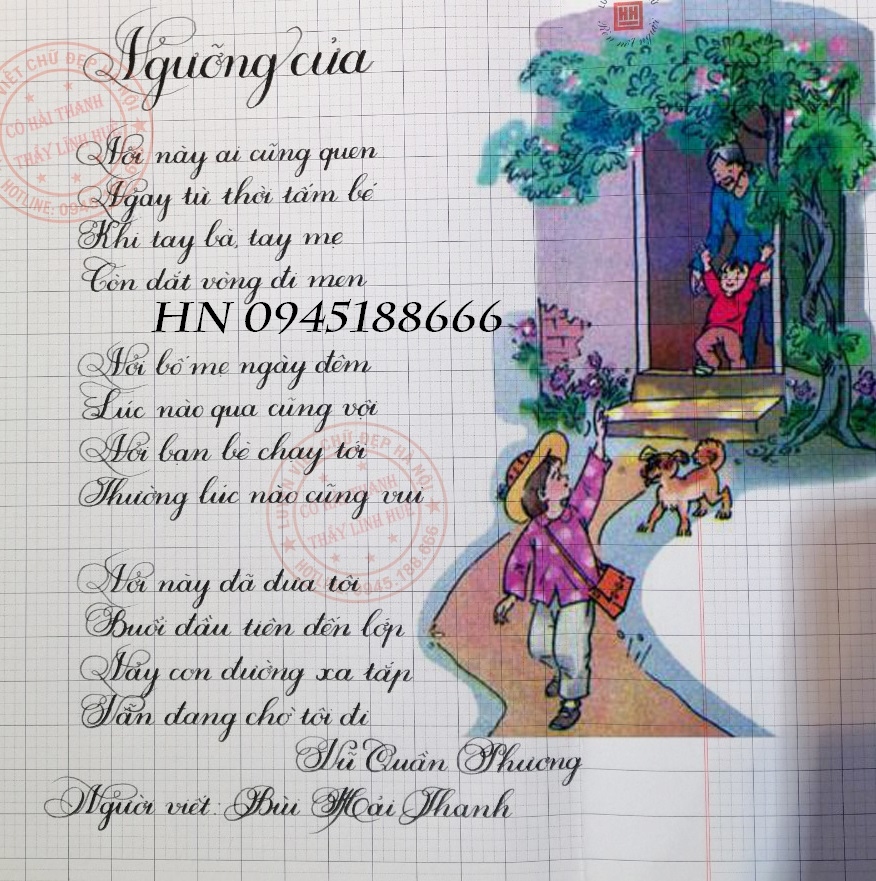 Ngưỡng cửa
Nơi này ai cũng quen
Ngay từ thời tấm bé
Khi tay bà, tay mẹ
Còn dắt vòng đi men
HN 0945188666
Nơi bố mẹ ngày đêm
Lúc nào qua cũng vội
Nơi bạn bè chạy tới
Thường lúc nào cũng vui
Nơi này đã đưa tôi
Buổi đầu tiên đến lớp
Nay con đường xa tắp
Vẫn đang chờ tôi đi
Vũ Quần Phương
Người viết: Bùi Hải Thanh
LUYỆN VIẾT CHỮ ĐẸP HÀ NỘI
CÔ HẢI THANH
THẦY LĨNH HUẾ
HOTLINE: 0945.188.666
HH